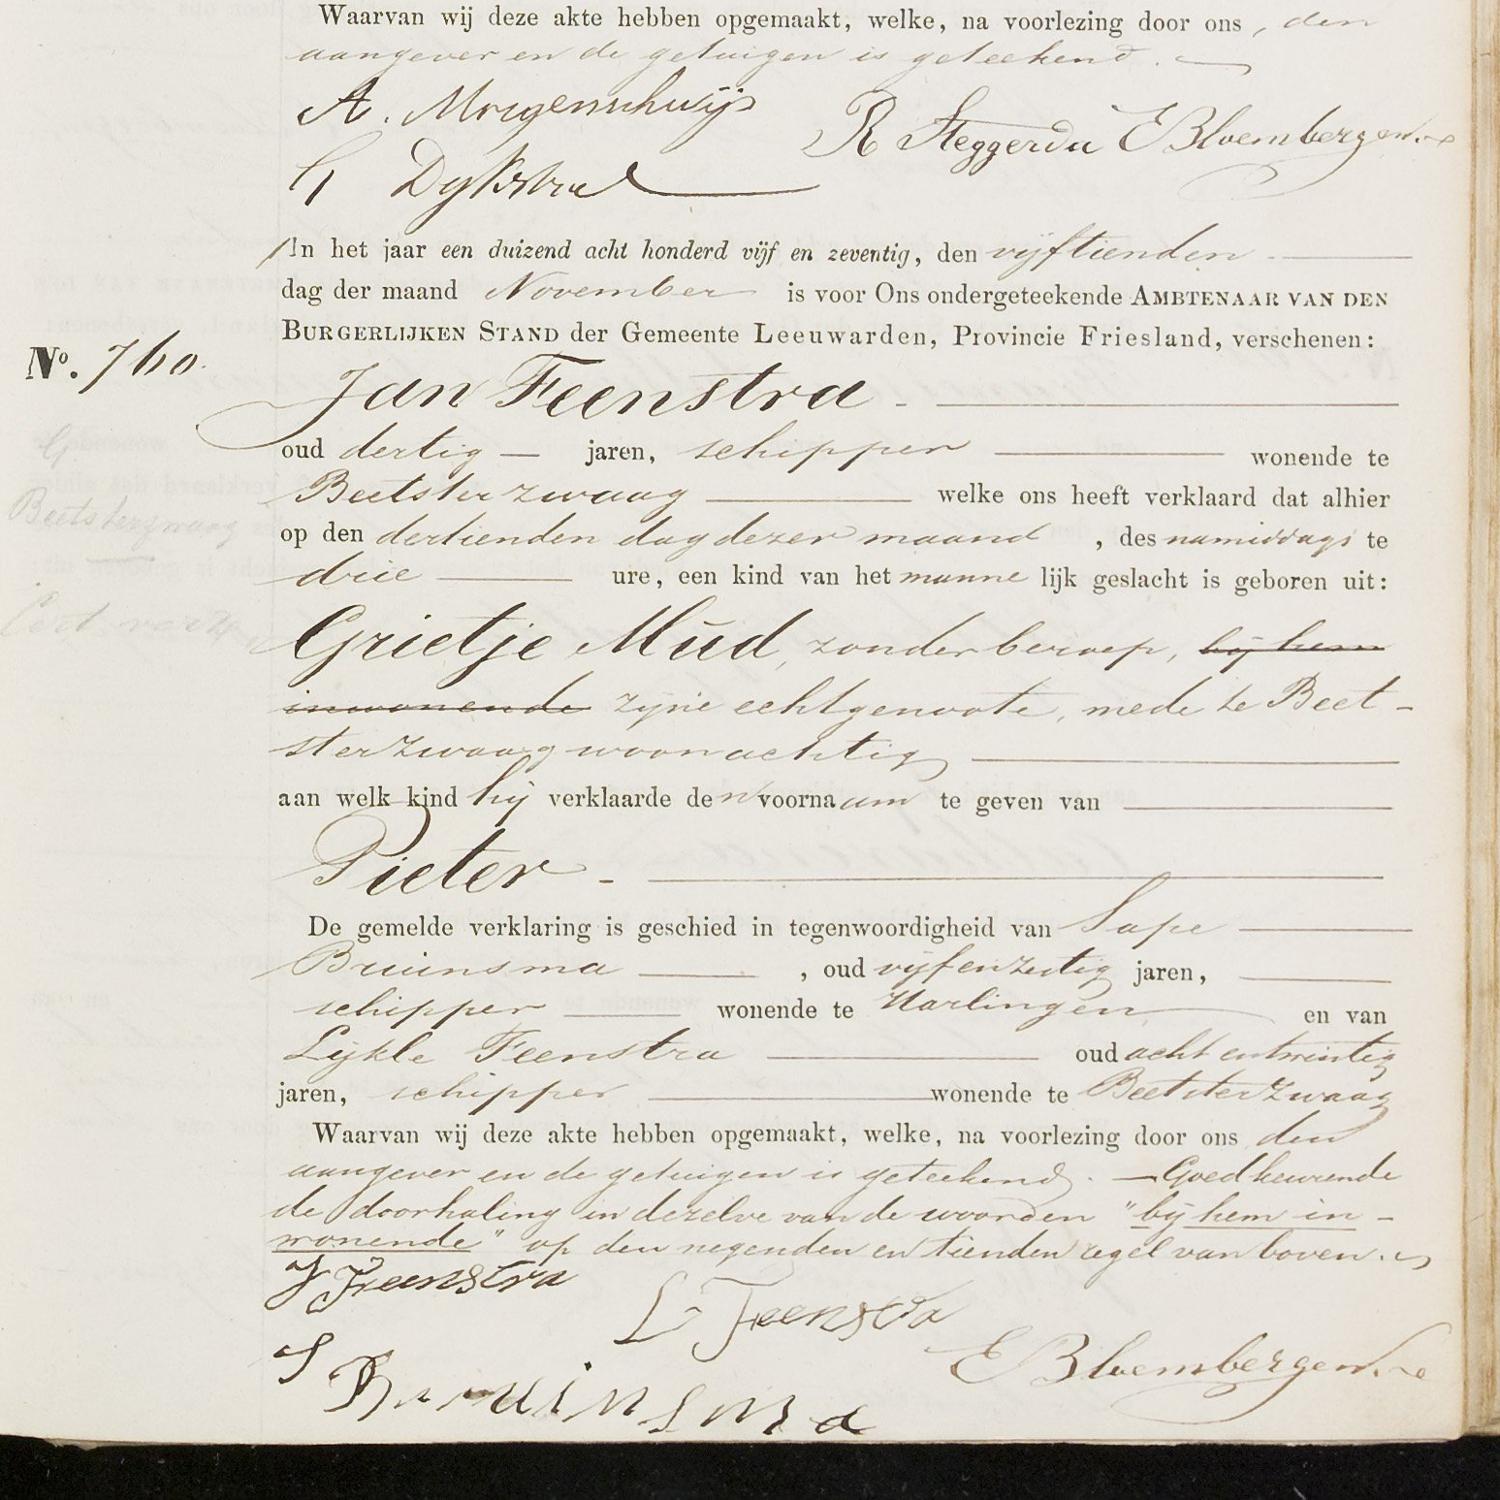 Waarvan wij deze akte hebben opgemaakt, welke, na voorlezing door ons, den
aangever en de getuigen is geteekend.
A. Morgenschweijs R Steggerda E Bloembergen
G Dykstra
In het jaar een duizend acht honderd vijf en zeventig, den vijftienden
dag der maand November is voor Ons ondergeteekende AMBTENAAR VAN DEN
BURGERLIJKEN STAND der Gemeente Leeuwarden, Provincie Friesland, verschenen:
No. 760.
Jan Feenstra
oud dertig jaren, schipper wonende te
Beetsterzwaag welke ons heeft verklaard dat alhier
Beetsterzwaag
op den dertienden dag dezer maand, des namiddags te
drie ure, een kind van het mannelijk geslacht is geboren uit:
Grietje Mud, zonder beroep, bij hem
inwonende zijne echtgenoote, mede te Beet-
sterzwaag woonachtig
aan welk kind hij verklaarde den voornaam te geven van
Pieter
De gemelde verklaring is geschied in tegenwoordigheid van Sape
Bruinsma, oud vijf en zestig jaren,
schipper wonende te Harlingen en van
Lykle Feenstra oud acht en twintig
jaren, schipper wonende te Beetsterzwaag
Waarvan wij deze akte hebben opgemaakt, welke, na voorlezing door ons den
aangever en de getuigen is geteekend. – Goedkeurende
de doorhaling in dezelve van de woorden "bij hem in-
wonende" op den negenden en tienden regel van boven.
J Feenstra
L Feenstra
E Bloembergen
S Bruinsma